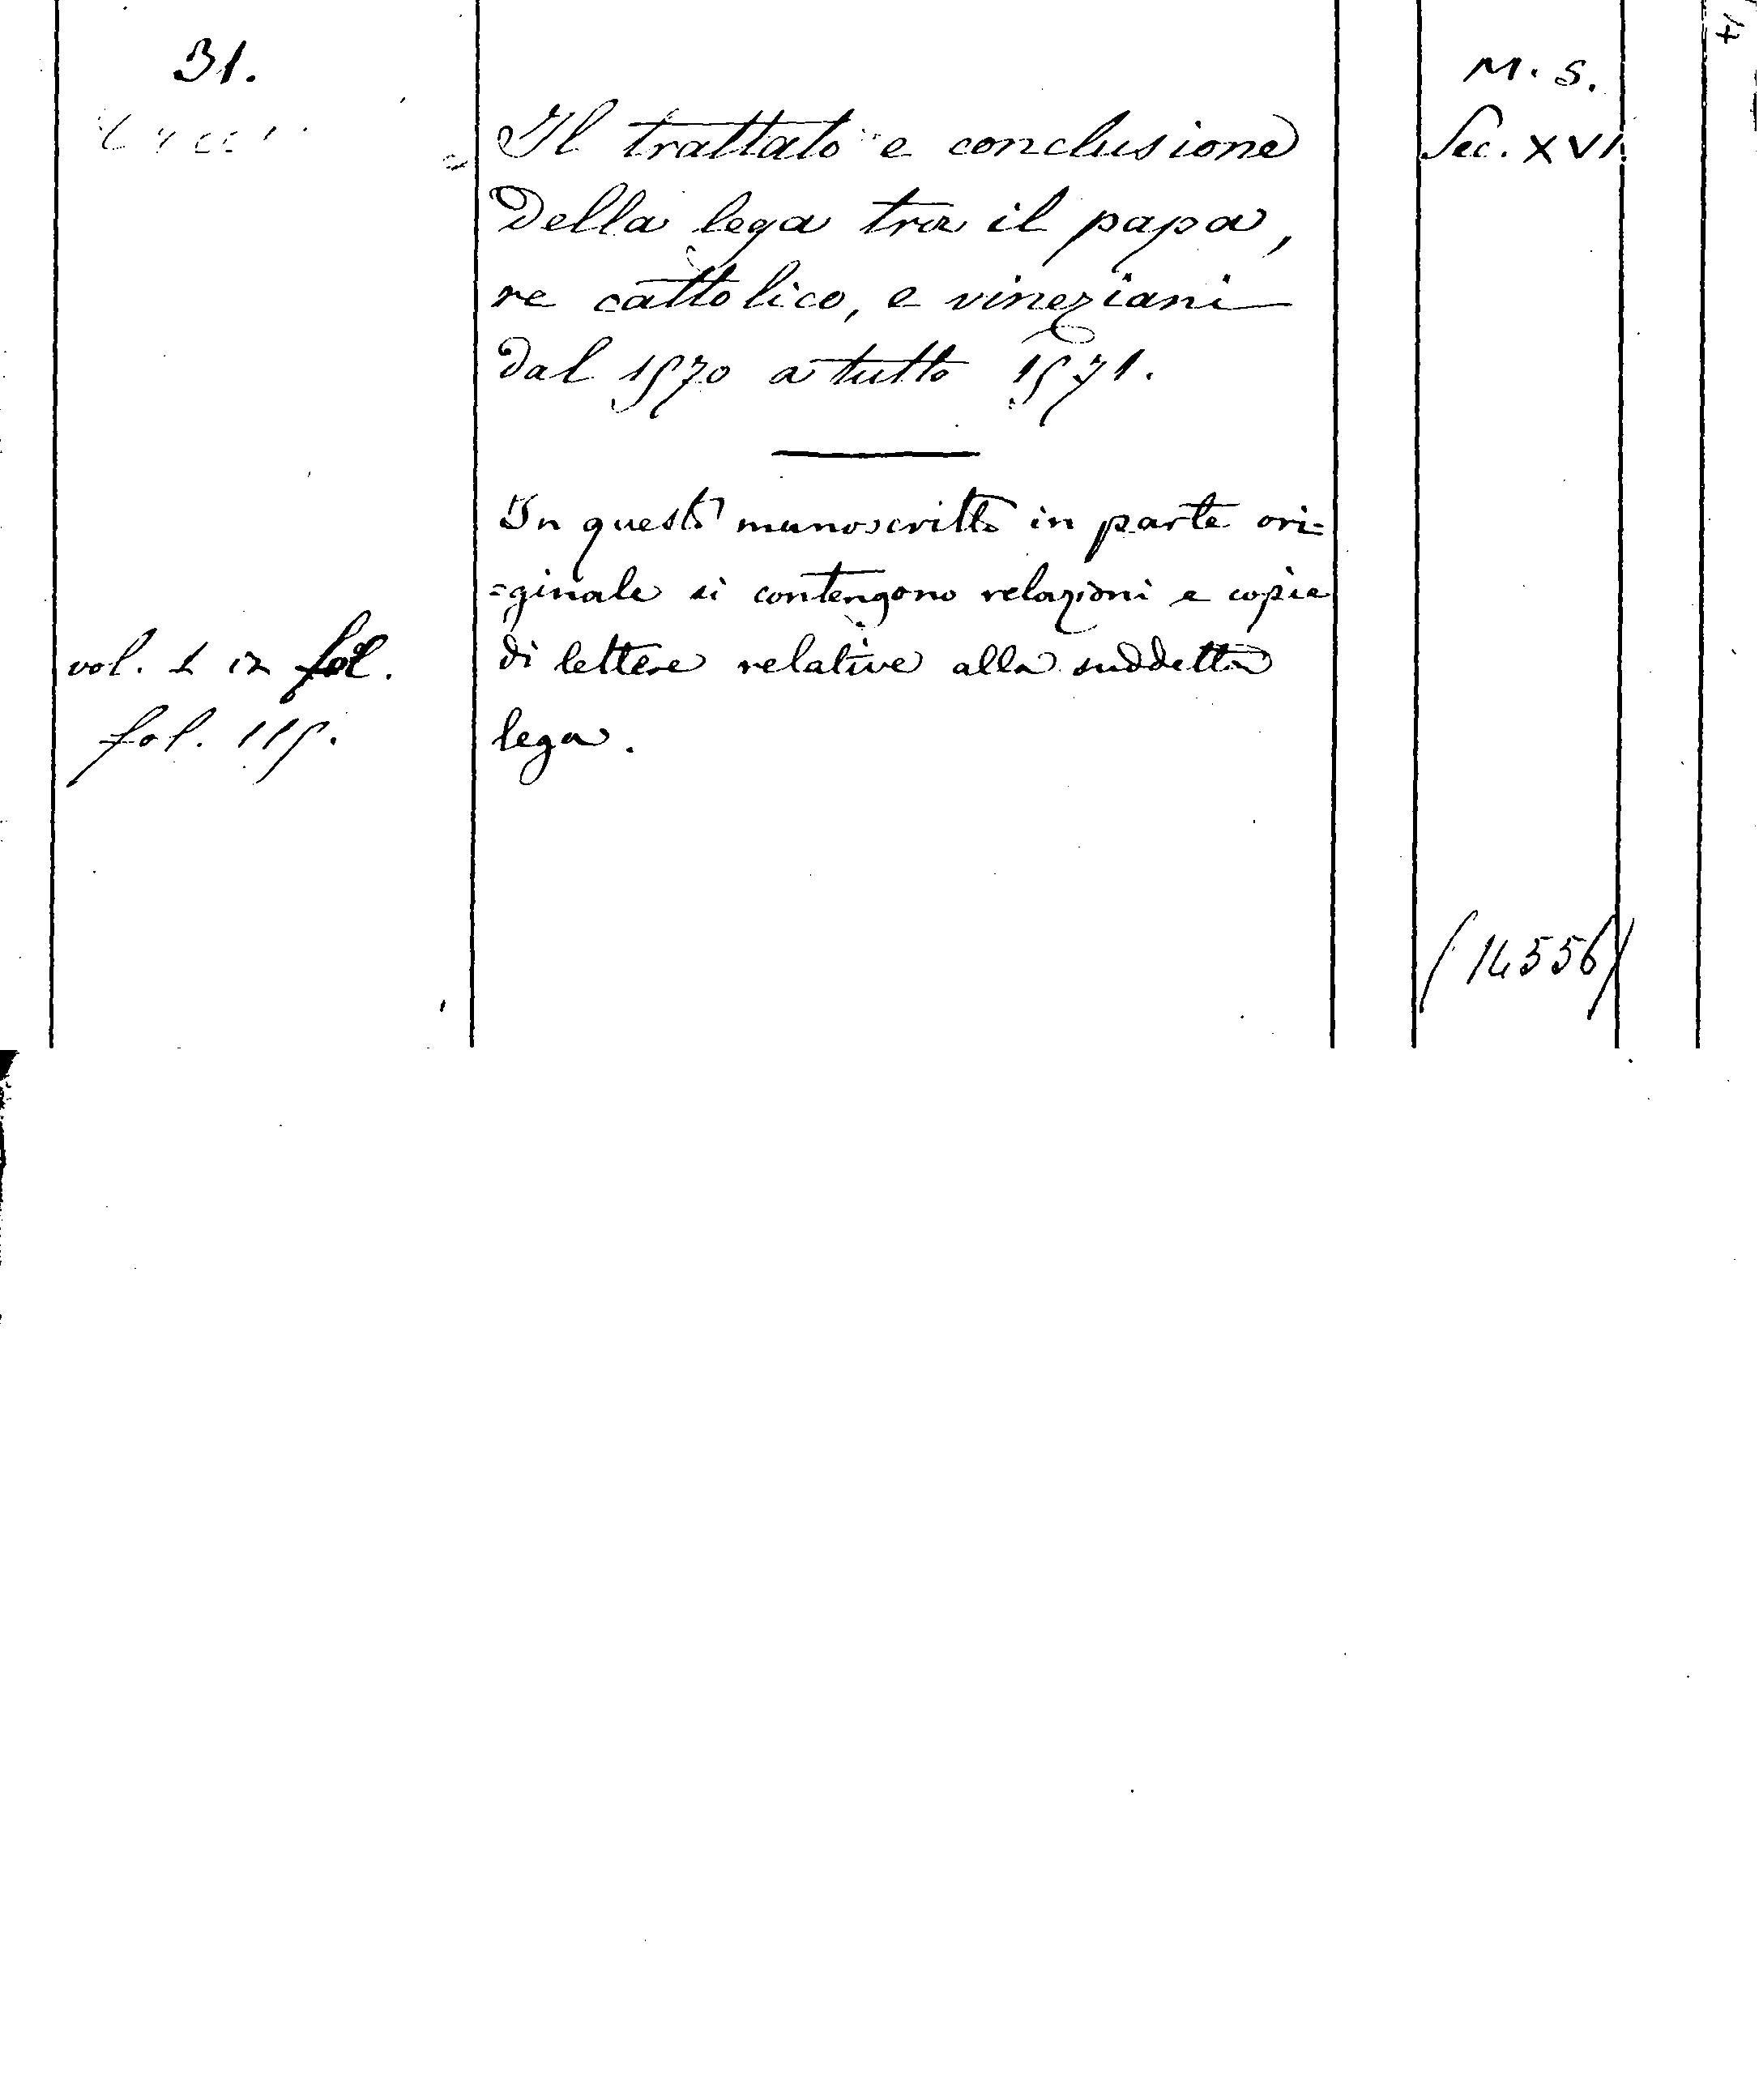 31.
M. S.
Sec. XVI.
Il trattato e conclusione
della lega tra il papa,
re cattolico, e vineziani
dal 1570 a tutto 1571.
In questo manoscritto in parte ori=
=ginale si contengono relazioni e copie
di lettere relative alla suddetta
lega.
vol. 1 in fol.
fol. 115.
(14556)